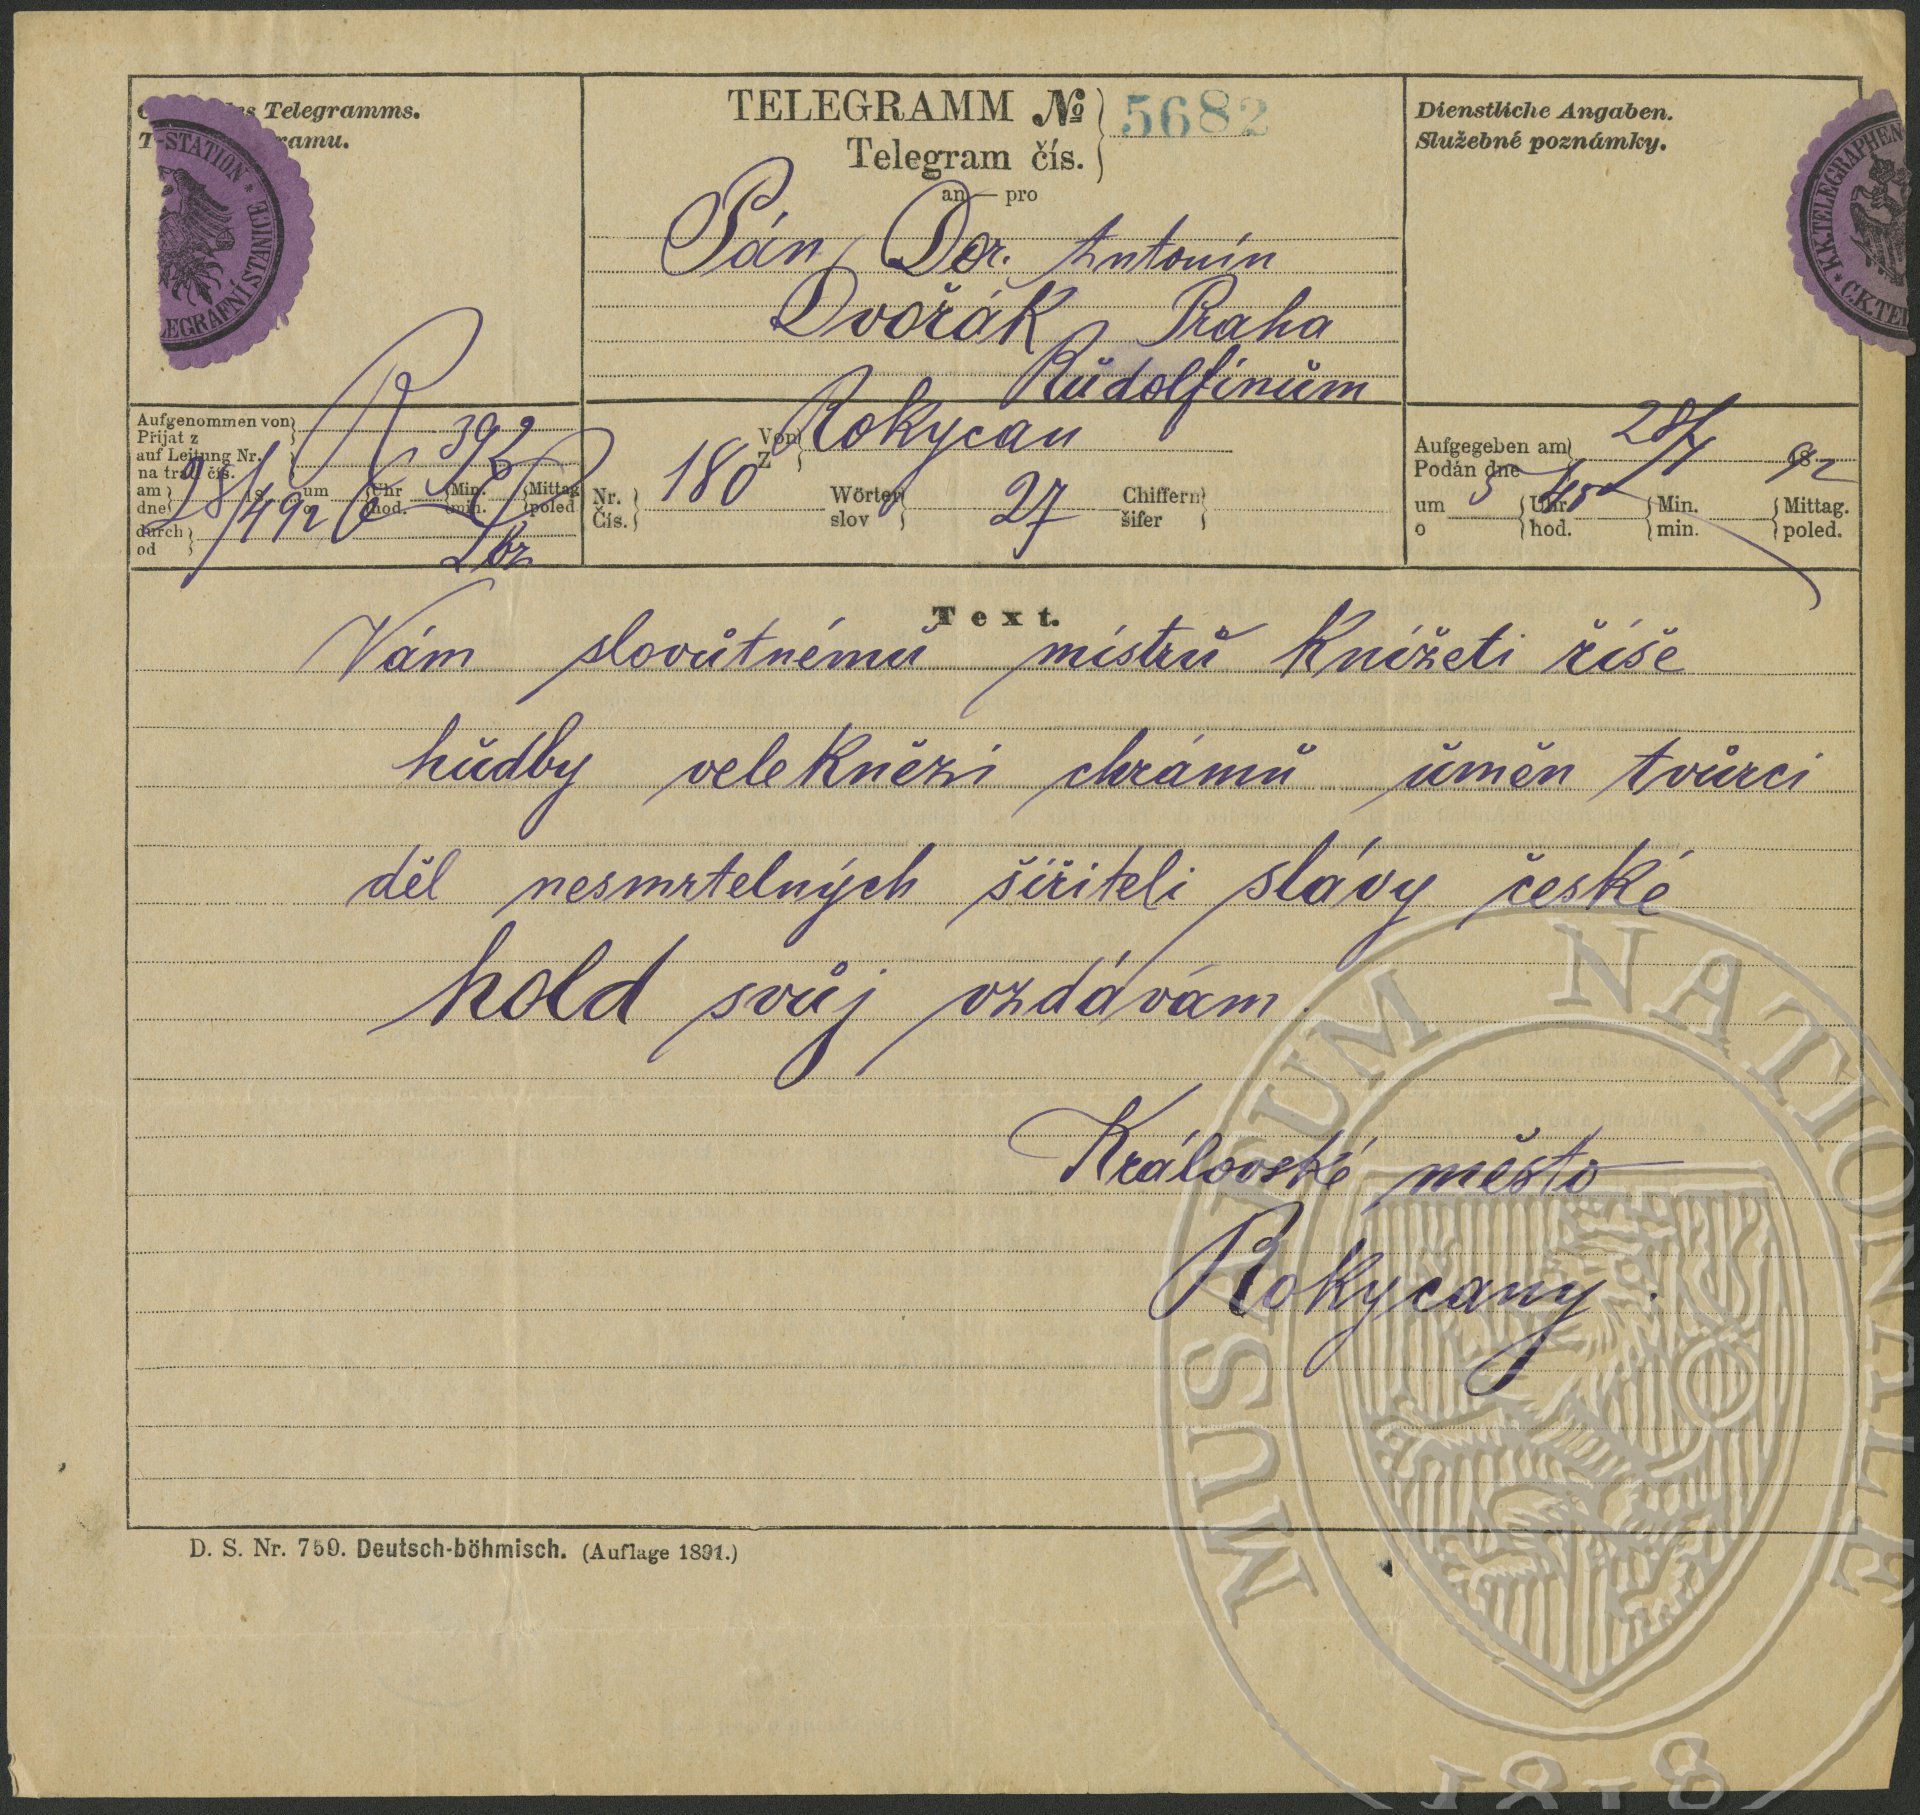 des Telegramms.
T-STATION
LEGRAFNÍ STANICE
TELEGRAMM №
5682
Telegram čís.
an — pro
Pán Dor. Antonín
Dvořák Praha
Rudolfinum
Dienstliche Angaben.
Služebné poznámky.
K.K. TELEGRAPHEN
C.K. TEL
Aufgenommen von
Přijat z
auf Leitung Nr.
na trati čís.
R 392
am um Uhr Min. Mittag
dne o hod. min. poled
28/4 92 6
durch
od
Von Rokycan
Z
Nr. 180 Wörter 27 Chiffern
Čís. slov šifer
Aufgegeben am 28/4 1892
Podán dne
um 5 Uhr Min. Mittag.
o hod. min. poled.
Text.
Vám slovutnému mistru Knížeti říše
hudby veleknězi chrámu umění tvůrci
děl nesmrtelných šířiteli slávy české
hold svůj vzdávám.
Královské město
Rokycany.
D. S. Nr. 750. Deutsch-böhmisch. (Auflage 1891.)
MUSAEUM NATIONALE
1818